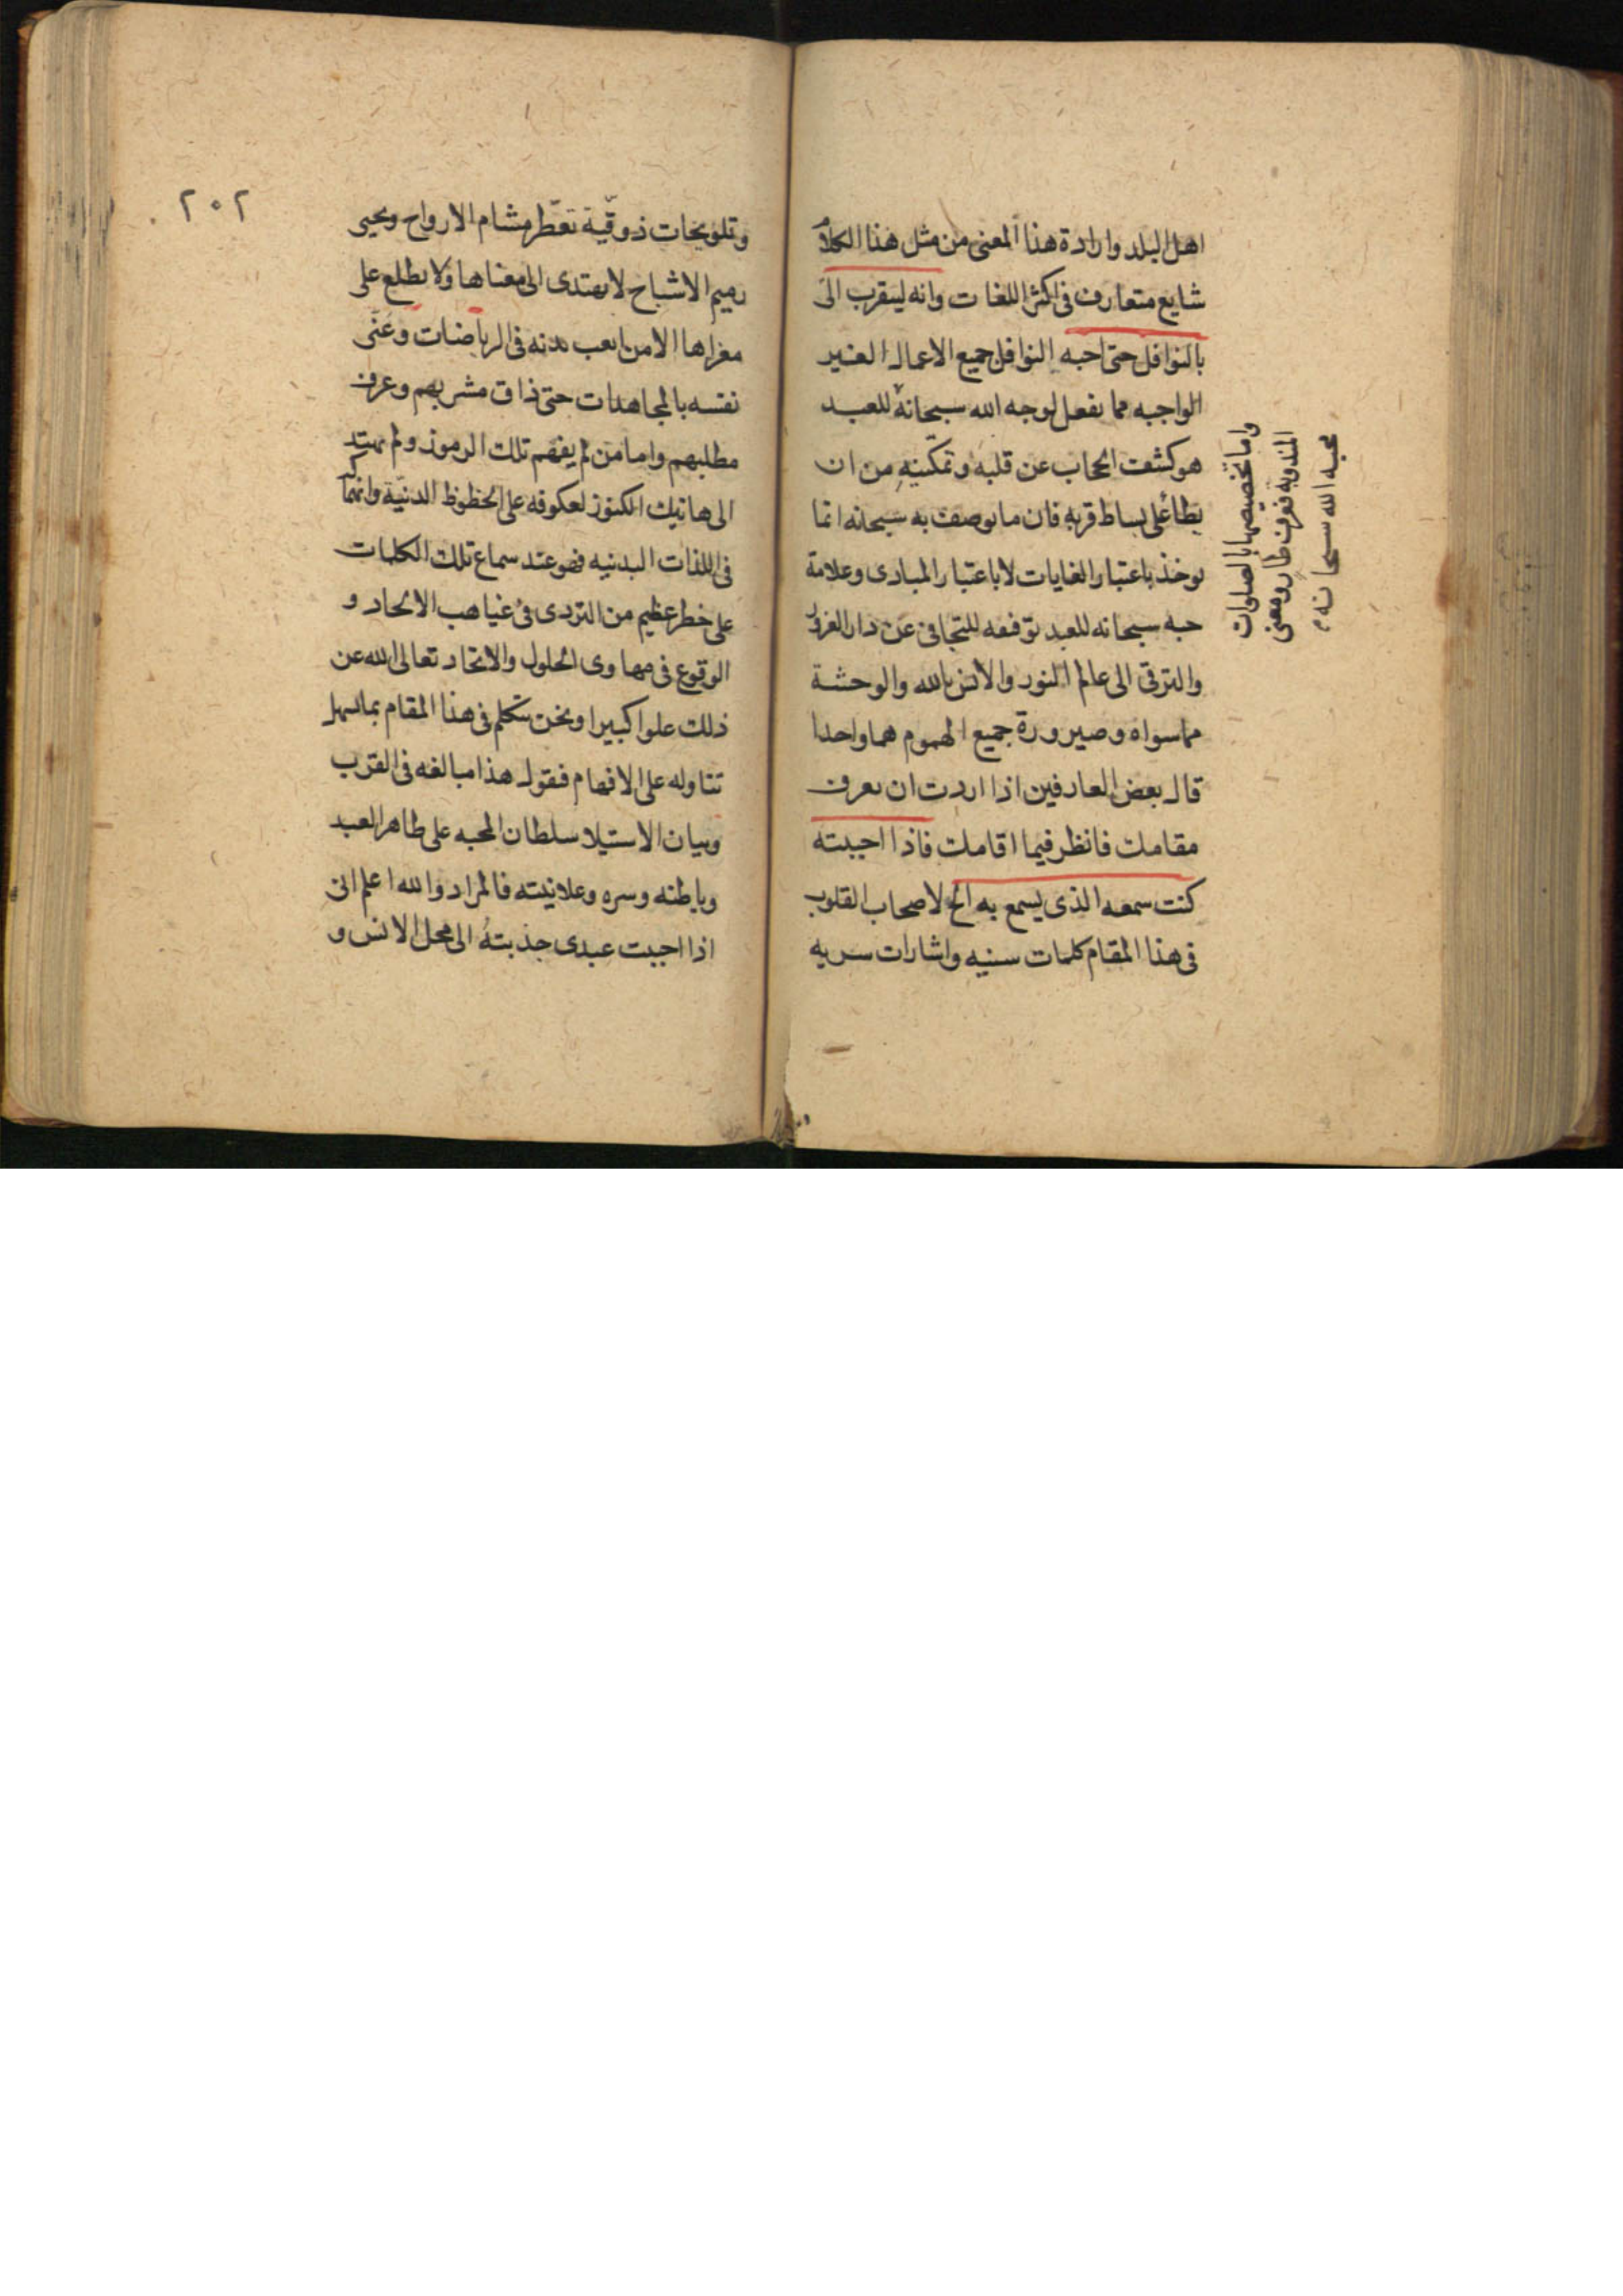 اهل البلد وارادة هذا المعنى من مثل هذا الكلام
شايع متعارف فى اكثر اللغات وانه ليتقرب الى
بالنوافل حتى احبه النوافل جميع الاعمال الغير
الواجبه مما يفعل لوجه الله سبحانه للعبد
هو كشف الحجاب عن قلبه وتمكينه من ان
يطأ على بساط قربه فان ما يوصف به سبحانه انما
يوخذ باعتبار الغايات لا باعتبار المبادى وعلامة
حبه سبحانه للعبد توفقه للتجافى عن دار الغرور
والترقى الى عالم النور والانس بالله والوحشة
مما سواه وصيرورة جميع الهموم هما واحدا
قال بعض العارفين اذا اردت ان تعرف
مقامك فانظر فيما اقامك فاذا احببته
كنت سمعه الذى يسمع به الخ لاصحاب القلوب
فى هذا المقام كلمات سنيه واشارات سريه
واما تخصيصها بالصلوات
المندوبه فعرف طار ومعنى
محبه الله سبحانه م
٢٠٢
وتلويحات ذوقية تعطر مشام الارواح ويحيى
رميم الاشباح لا يهتدى الى معناها ولا يطلع على
مغزاها الا من اتعب بدنه فى الرياضات وعنى
نفسه بالمجاهدات حتى ذاق مشربهم وعرف
مطلبهم واما من لم يفهم تلك الرموز ولم يهتد
الى هاتيك الكنوز لعكوفه على الحظوظ الدنية وانهماكه
فى اللذات البدنيه فهو عند سماع تلك الكلمات
على خطر عظيم من التردى فى غياهب الالحاد و
الوقوع فى مهاوى الحلول والاتحاد تعالى الله عن
ذلك علوا كبيرا ونحن نتكلم فى هذا المقام بما يسهل
تناوله على الافهام فنقول هذا مبالغه فى القرب
وبيان الاستيلا سلطان المحبه على ظاهر العبد
وباطنه وسره وعلانيته فالمراد والله اعلم انى
اذا احببت عبدى جذبته الى محل الانس و